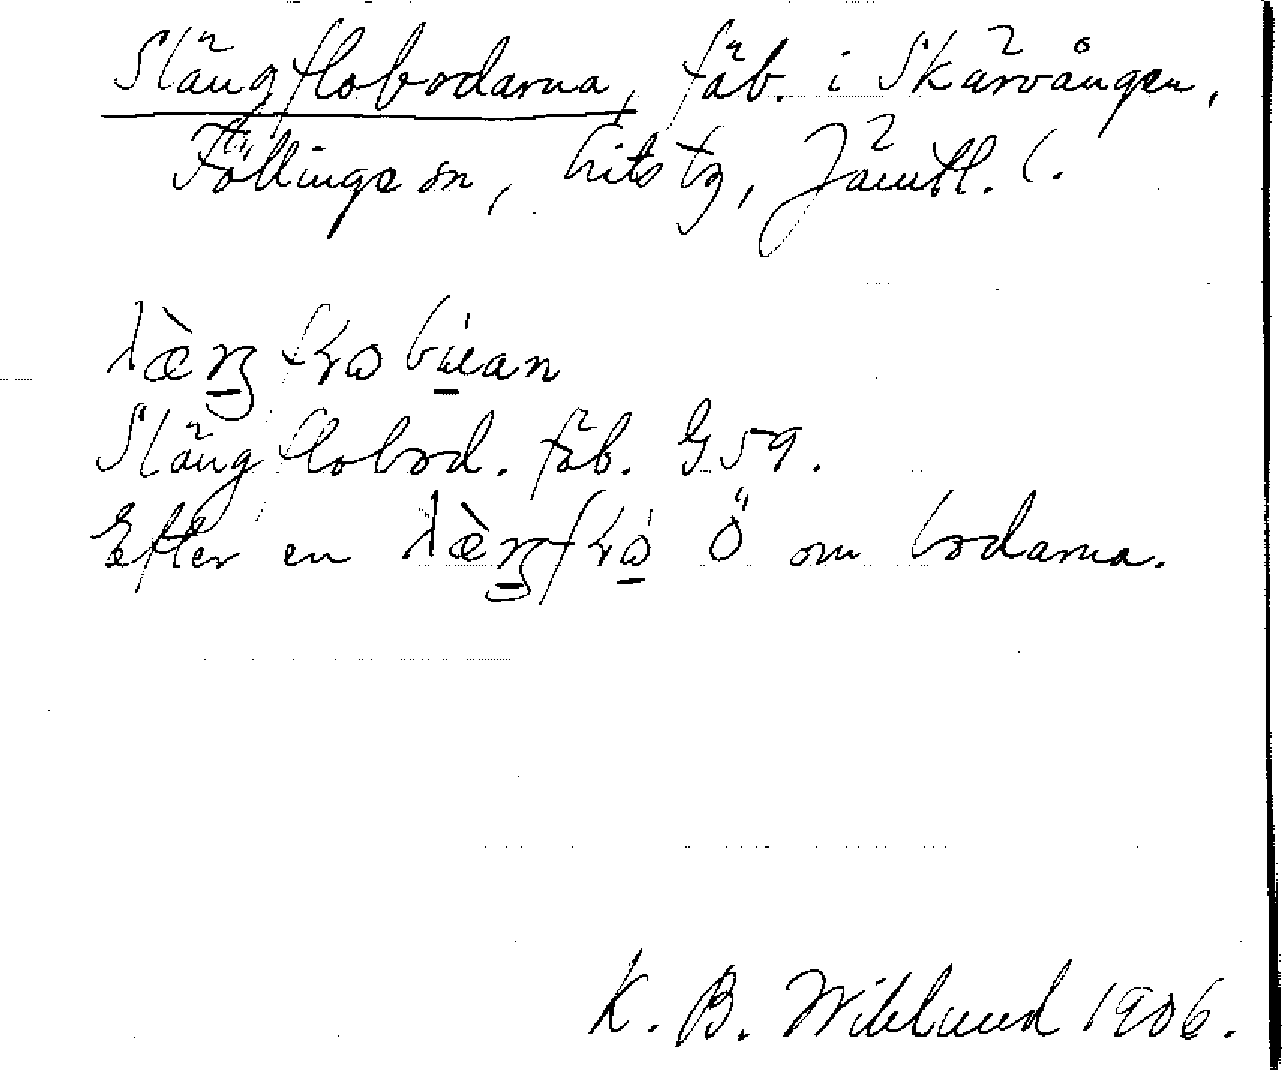 Slängflobodarna, fäb. i Skärvången,
Föllinge sn, Lits tg, Jämtl. l.
Slängflobod. fäb. G 59.
Efter en ö om bodarna.
K. B. Wiklund 1906.